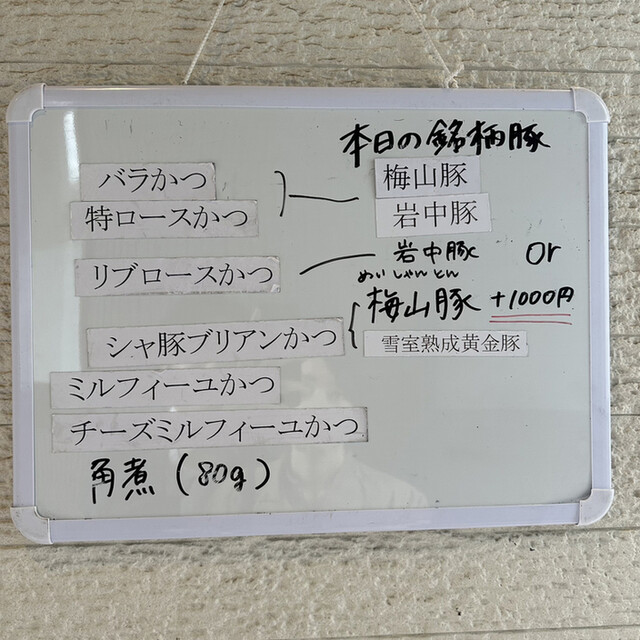 本日の銘柄豚
バラかつ
梅山豚
特ロースかつ
岩中豚
リブロースかつ
岩中豚 or
めいしゃんとん
梅山豚 +1000円
シャ豚ブリアンかつ
雪室熟成黄金豚
ミルフィーユかつ
チーズミルフィーユかつ
角煮(80g)